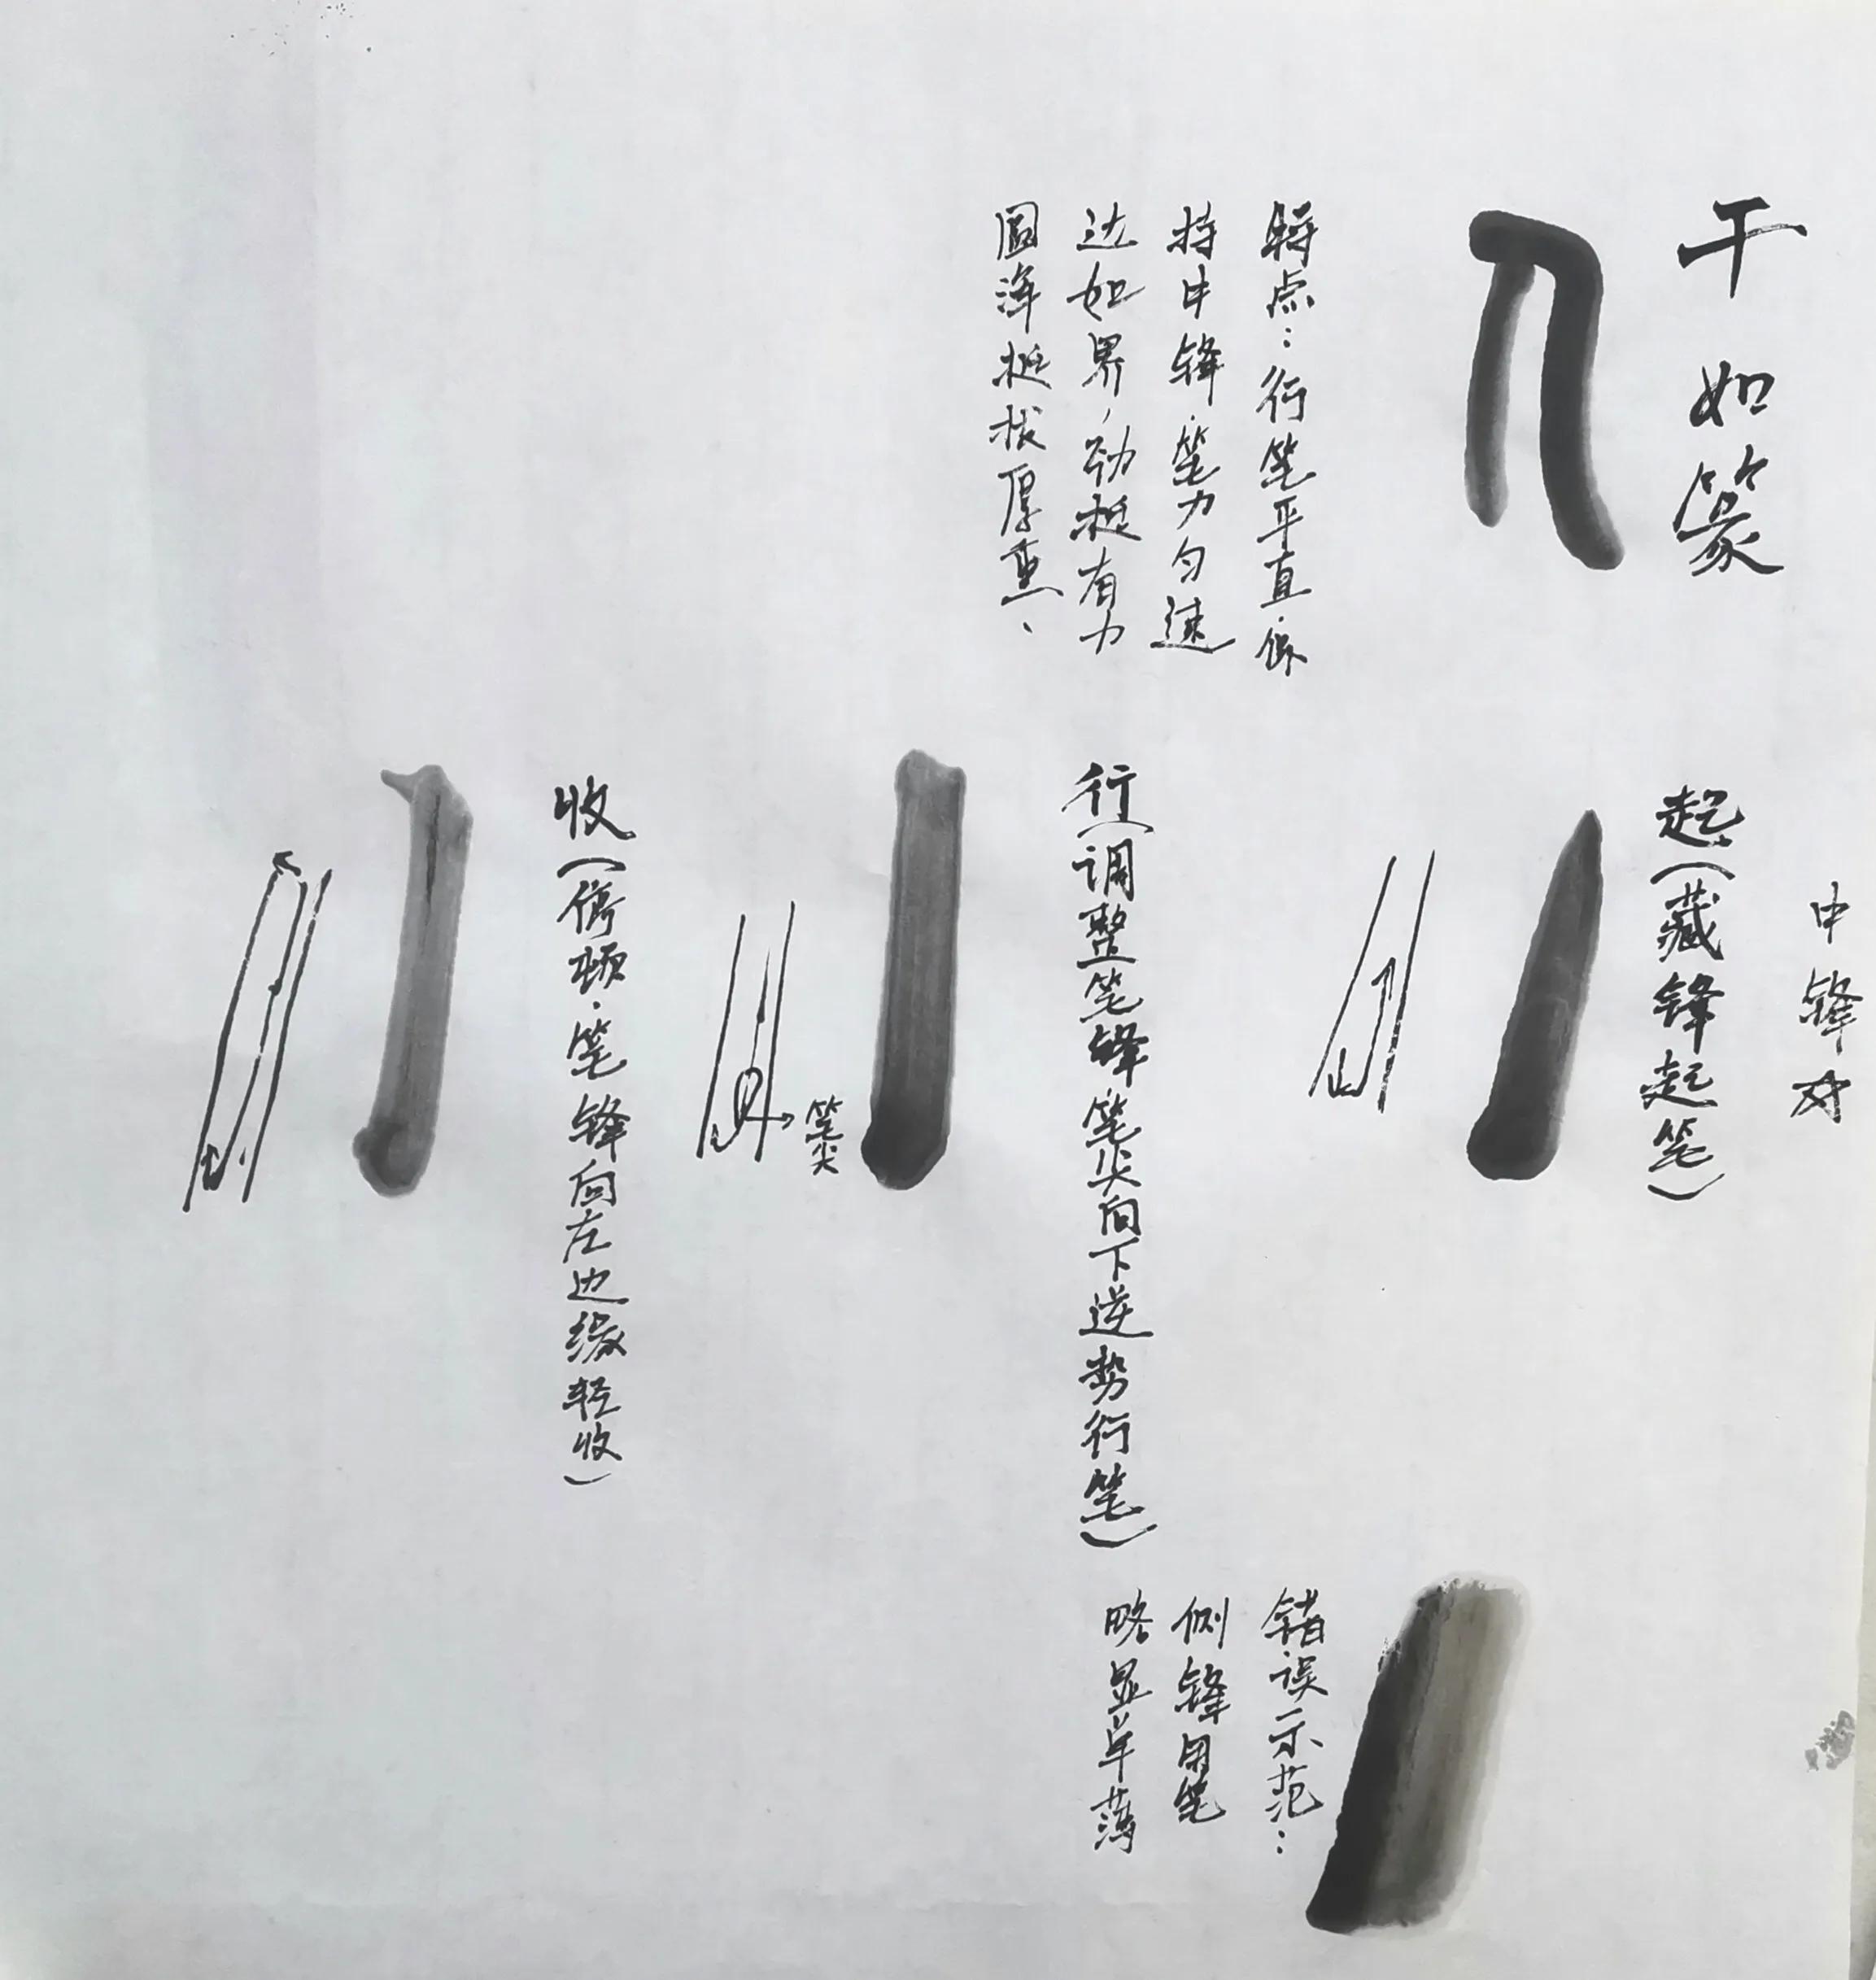 干如篆
特点：行笔平直.保
持中锋.笔力匀速
达如界，劲挺有力
圆浑挺拔厚重、
中锋对
起（藏锋起笔）
行（调整笔锋.笔尖向下逆势行笔）
笔尖
收（停顿.笔锋向左边缘轻收）
错误示范：
侧锋用笔
略显单薄